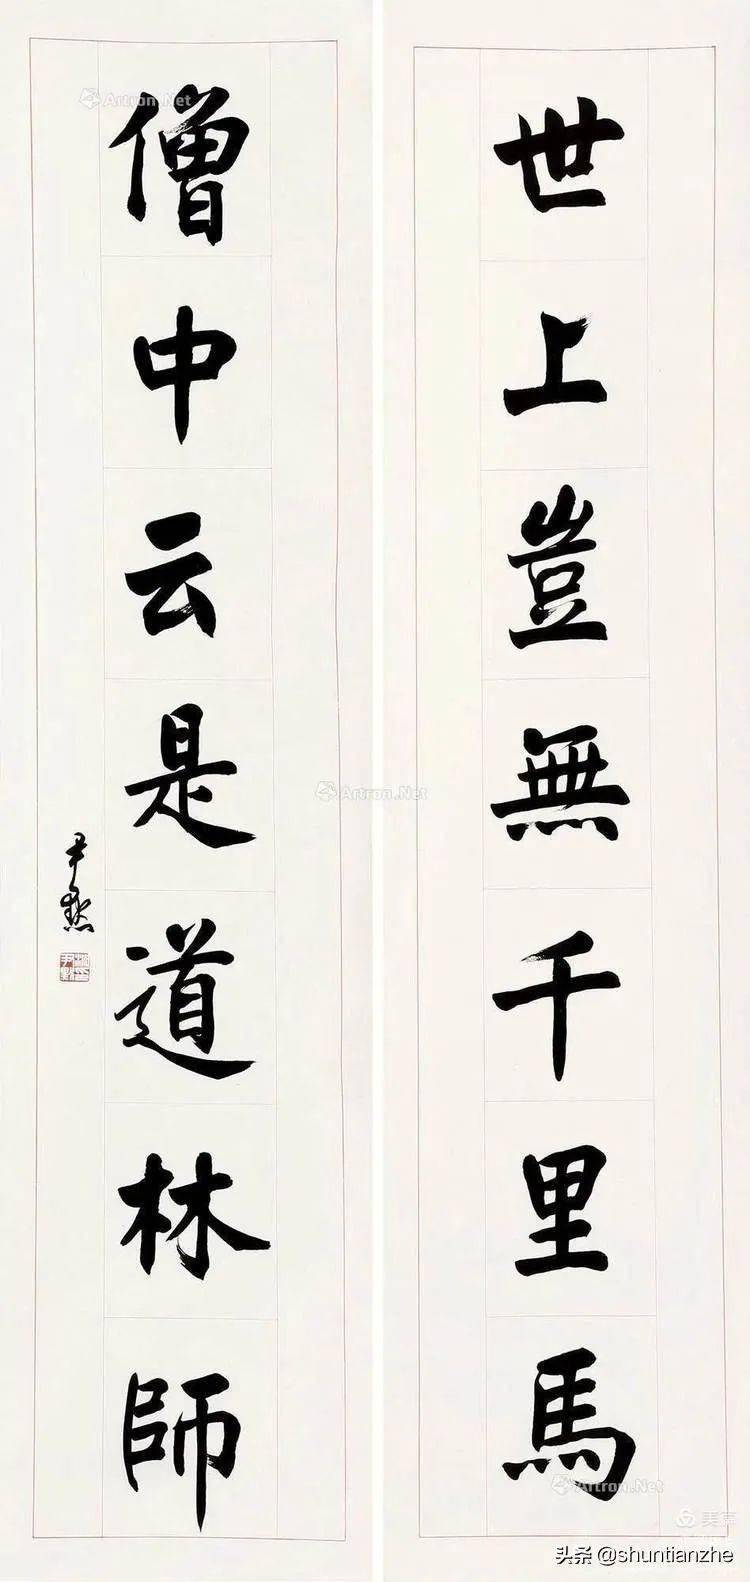 世上豈無千里馬
僧中云是道林師
尹默
Artron.Net
Artron.Net
Artron.Net
头条 @shuntianzhe